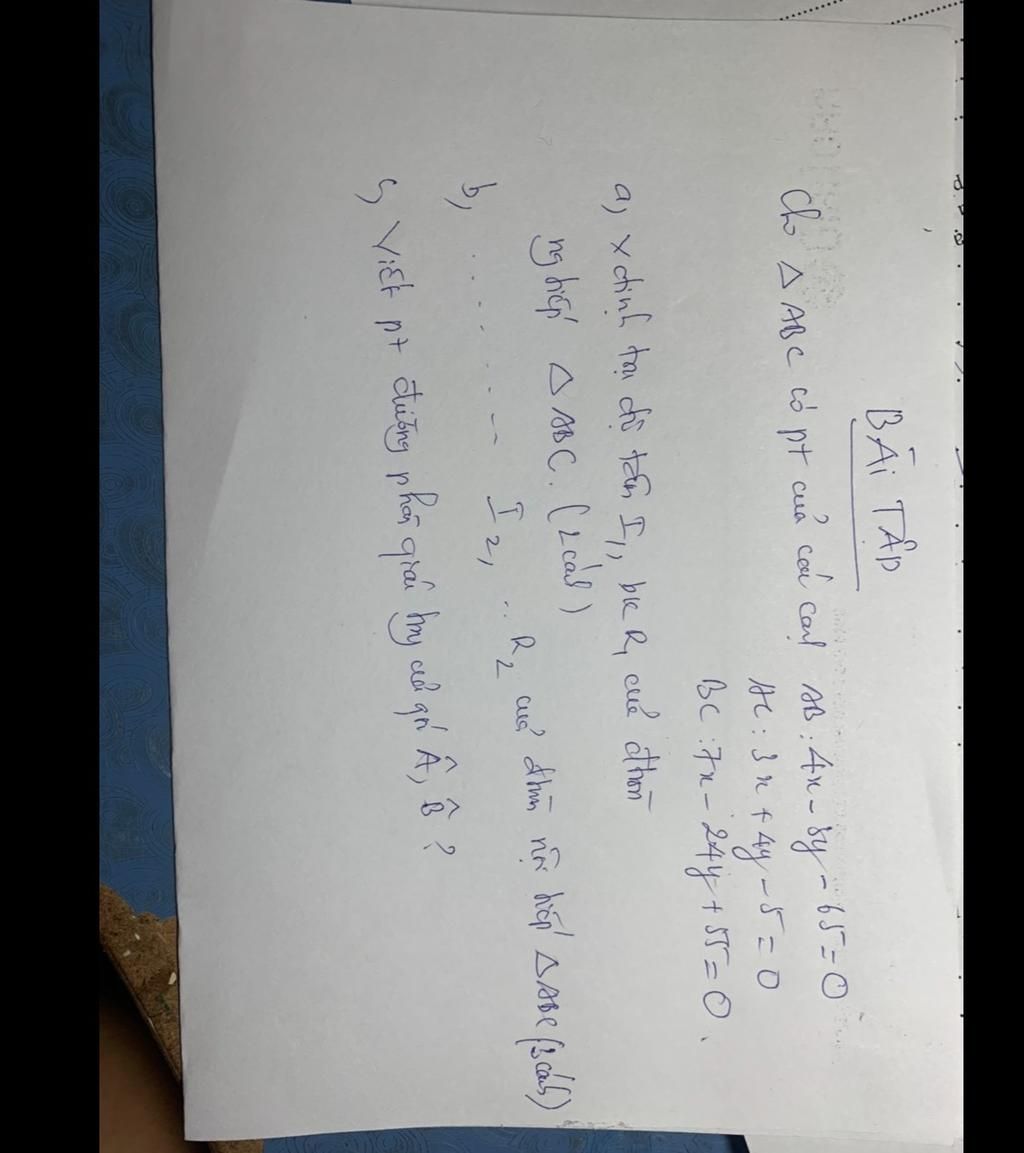 BÀI TẬP
Cho △ ABC có pt của các cạnh AB: 4x - 3y - 65 = 0
AC: 3x + 4y - 5 = 0
BC: 7x - 24y + 55 = 0.
a, x định tọa độ tâm I₁, bk R₁ của đtròn
nghiếp △ ABC. (2 cách)
b, . . . . . -- I₂, .. R₂ của đtròn nội tiếp △ABC (2 cách)
c, Viết pt đường phân giác trong của góc Â, B̂ ?